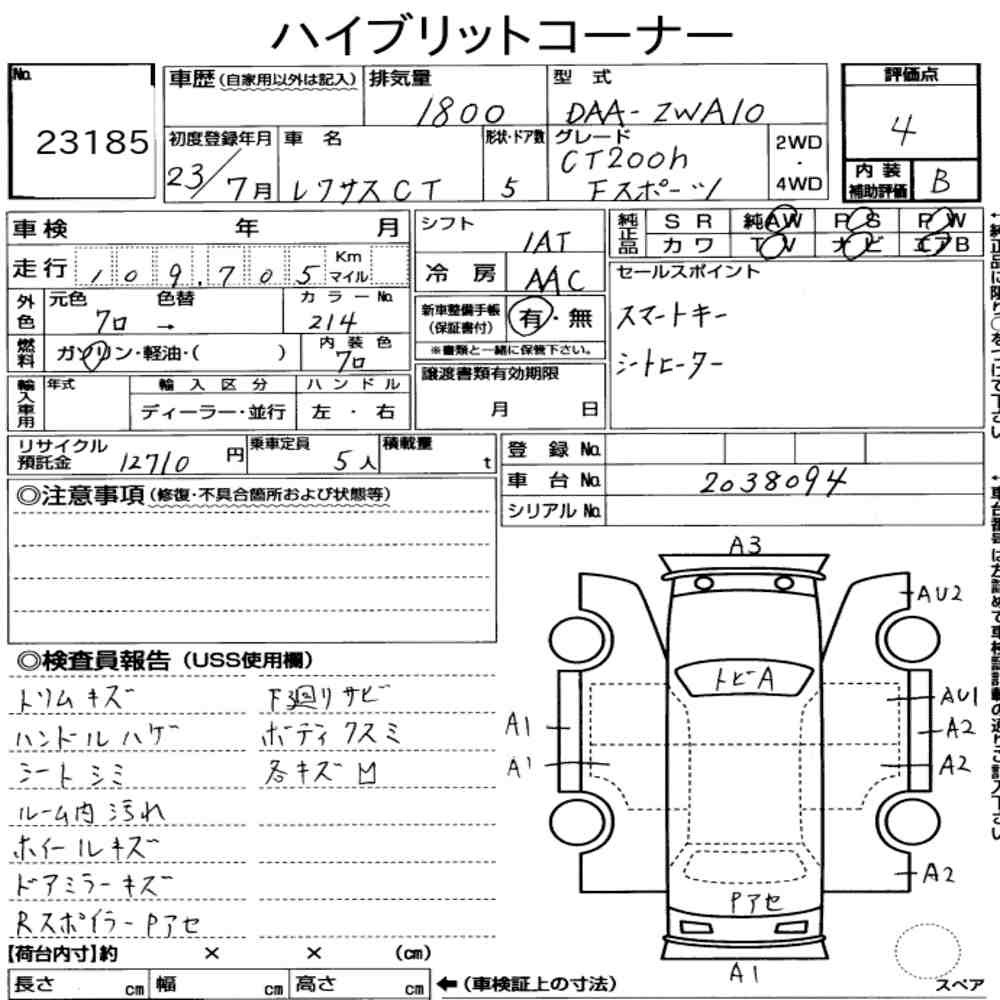 ハイブリットコーナー
No.
23185
車歴(自家用以外は記入)
排気量
1800
型式
DAA-ZWA10
評価点
4
内装
補助評価
B
初度登録年月
23/7月
車名
レクサスCT
形状・ドア数
5
グレード
CT200h
Fスポーツ
2WD
・
4WD
車検 年 月
走行 109,705 Km マイル
外色
元色 色替
クロ →
カラーNo.
214
燃料
ガソリン・軽油・( )
内装色
クロ
輸入車用
年式
輸入区分
ディーラー・並行
ハンドル
左・右
シフト
IAT
冷房
AAC
新車整備手帳
(保証書付)
有・無
※書類と一緒に保管下さい。
譲渡書類有効期限
月 日
純正品
SR 純AW PS PW
カワ TV ナビ エアB
セールスポイント
スマートキー
シートヒーター
←純正品に限り○をつけて下さい
リサイクル
預託金
12710円
乗車定員
5人
積載量
t
登録No.
車台No. 2038094
シリアルNo.
◎注意事項(修復・不具合箇所および状態等)
◎検査員報告(USS使用欄)
トリムキズ
ハンドルハゲ
シートシミ
ルーム内汚れ
ホイールキズ
ドアミラーキズ
RスポイラーPアセ
下廻りサビ
ボディクスミ
各キズ凹
A3
AU2
トビA
AU1
A1
A2
A1
A2
A2
Pアセ
A1
スペア
【荷台内寸】約 × × (cm)
長さ cm 幅 cm 高さ cm
←(車検証上の寸法)